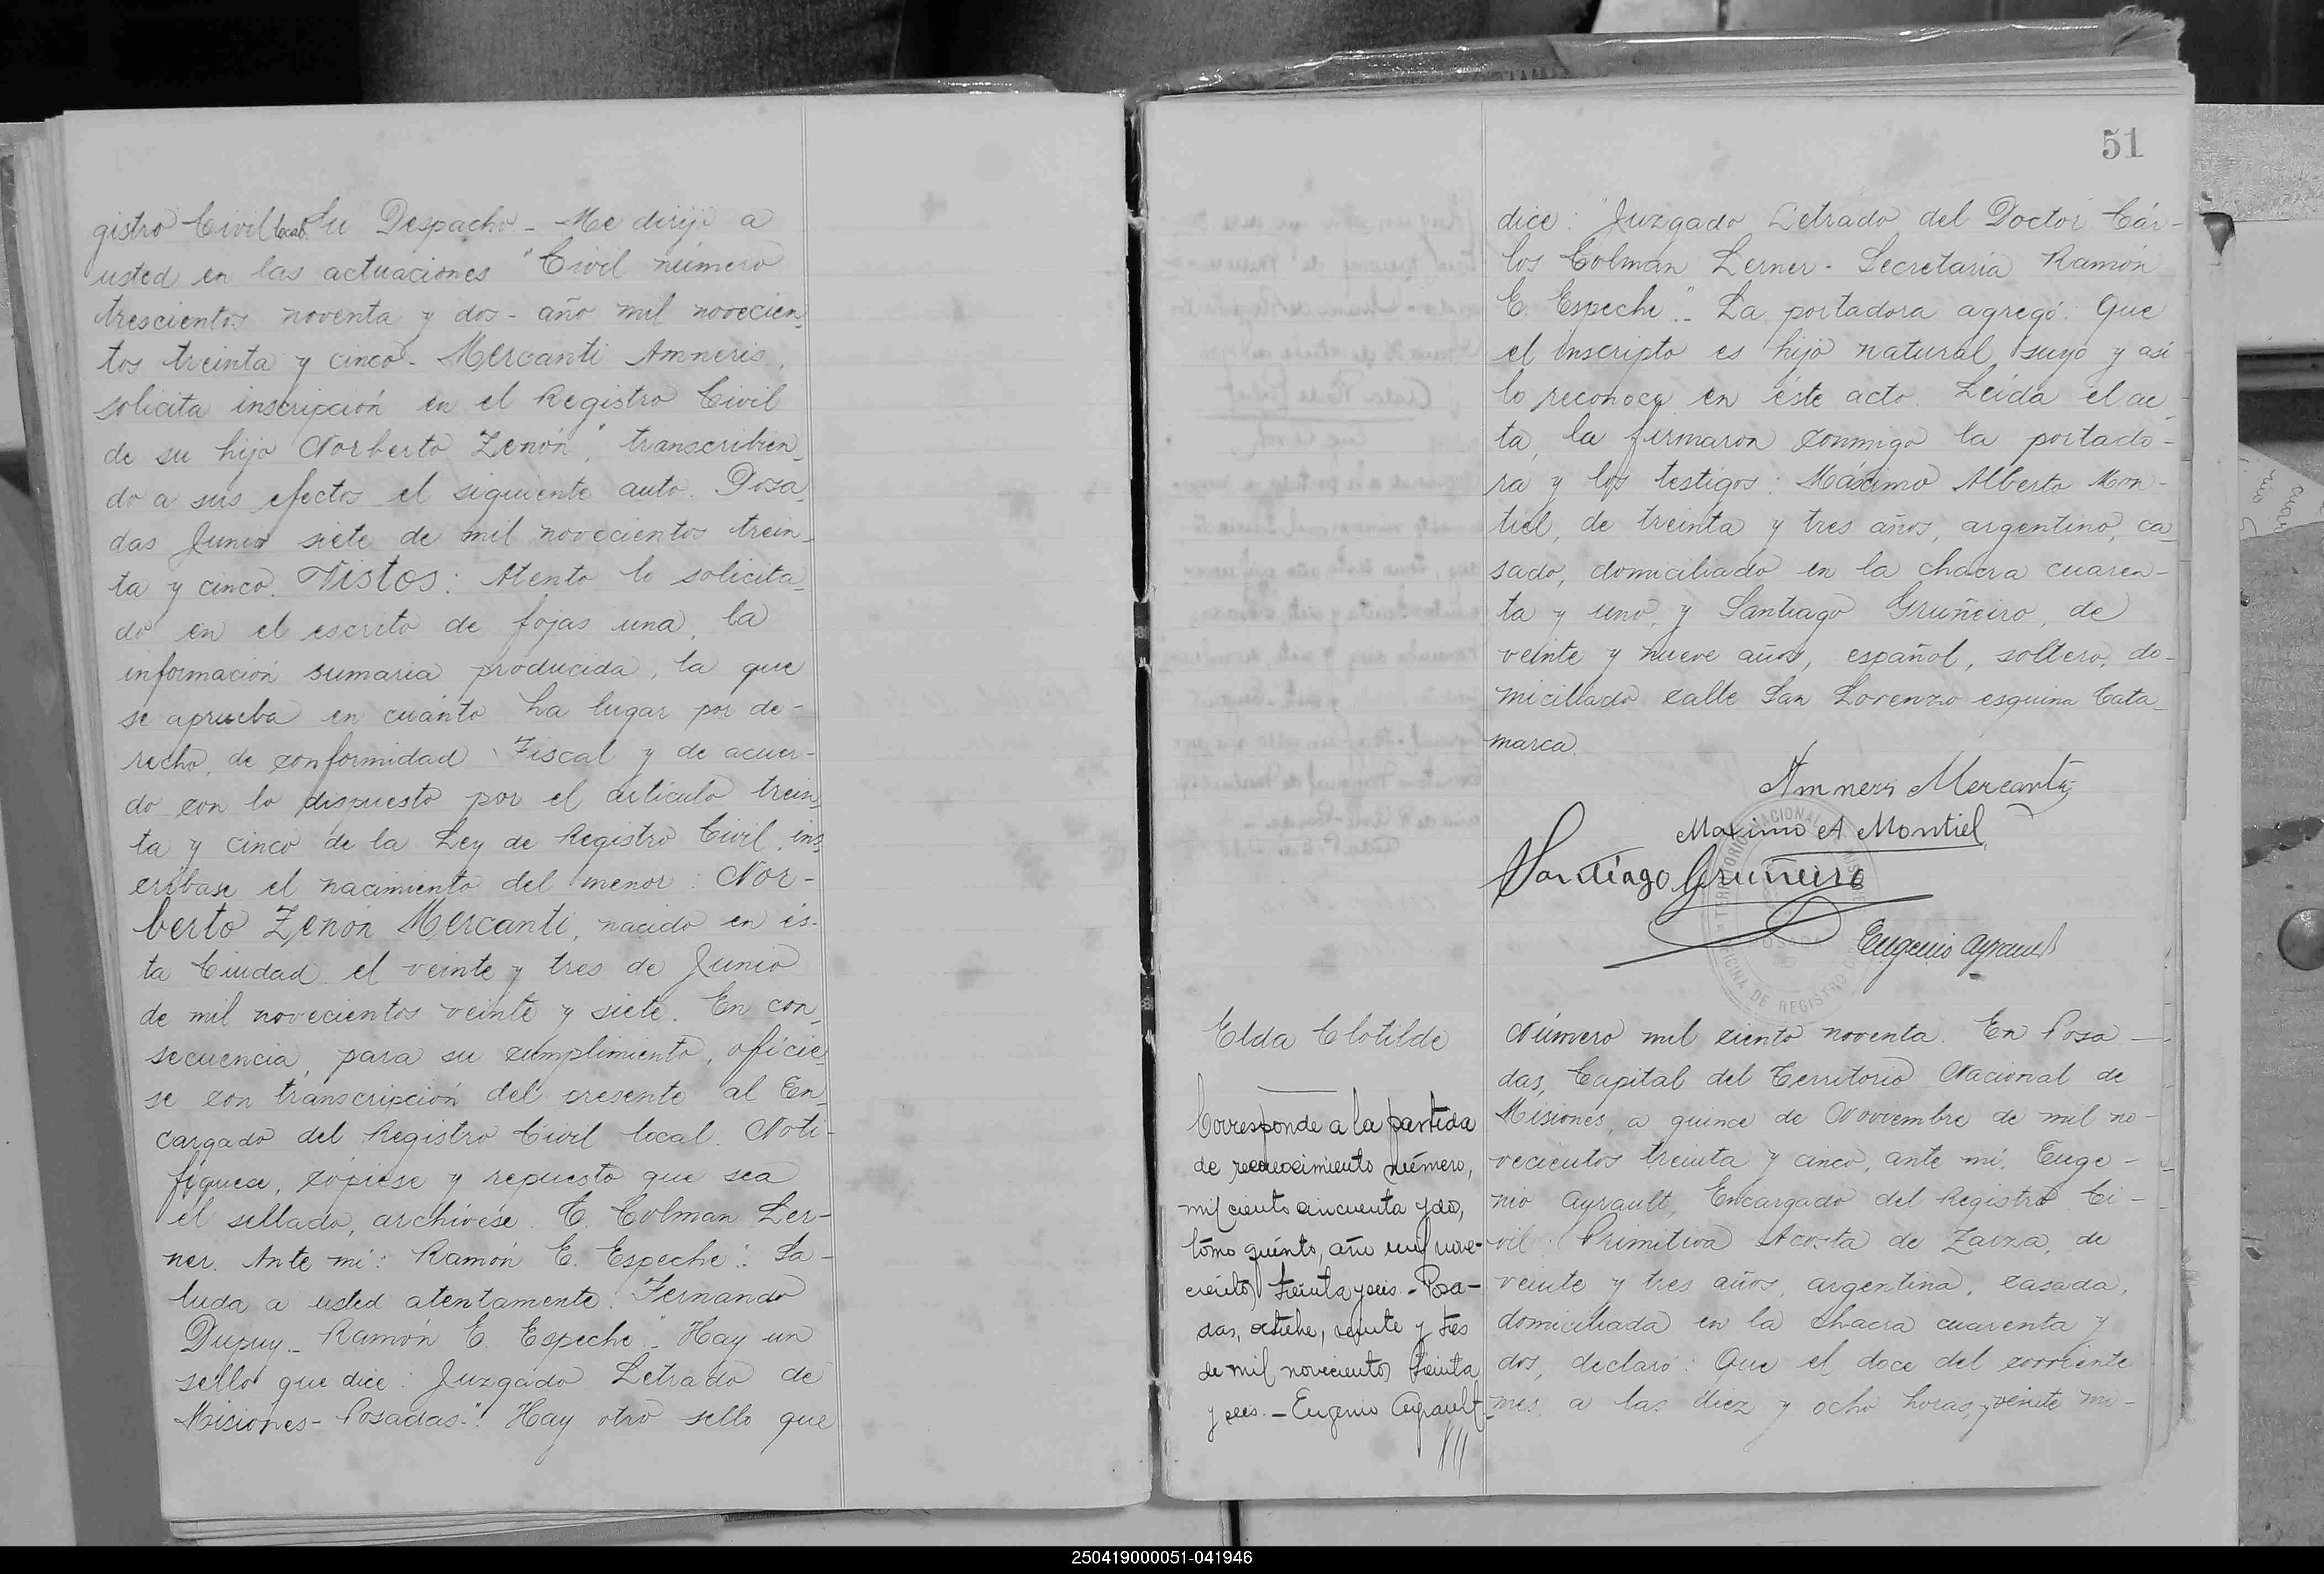 gistro Civil local. Su Despacho - Me dirijo a
usted en las actuaciones "Civil número
trescientos noventa y dos - año mil novecien-
tos treinta y cinco - Mercanti Amneris,
solicita inscripción en el Registro Civil
de su hijo Norberto Zenón", transcribien-
do a sus efectos el siguiente auto. Posa-
das Junio siete de mil novecientos trein-
ta y cinco. Vistos: Atento lo solicita-
do en el escrito de fojas una, la
información sumaria producida, la que
se aprueba en cuanto ha lugar por de-
recho, de conformidad Fiscal y de acuer-
do con lo dispuesto por el artículo trein-
ta y cinco de la Ley de Registro Civil, ins-
críbase el nacimiento del menor: Nor-
berto Zenón Mercanti, nacido en és-
ta Ciudad el veinte y tres de Junio
de mil novecientos veinte y siete. En con-
secuencia, para su cumplimiento, oficie-
se con transcripción del presente al En-
cargado del Registro Civil local. Noti-
fíquese, cópiese y repuesto que sea
el sellado, archívese. C. Colman Ler-
ner. Ante mí: Ramón E. Espeche". Sa-
luda a usted atentamente. Fernando
Dupuy - Ramón E. Espeche". Hay un
sello que dice: Juzgado Letrado de
Misiones - Posadas-". Hay otro sello que
51
dice: "Juzgado Letrado del Doctor Cár-
los Colman Lerner - Secretaria Ramón
E. Espeche".- La portadora agregó: Que
el inscripto es hijo natural suyo y así
lo reconoce en éste acto. Leída el ac-
ta, la firmaron conmigo la portado-
ra y los testigos: Máximo Alberto Mon-
tiel, de treinta y tres años, argentino, ca-
sado, domiciliado en la chacra cuaren-
ta y uno, y Santiago Gruñeiro, de
veinte y nueve años, español, soltero, do-
miciliado calle San Lorenzo esquina Cata-
marca.
Amneris Mercanti
Maximo A Montiel
Santiago Gruñeiro
Eugenio Ayrault
Elda Clotilde
Corresponde a la partida
de reconocimiento número,
mil ciento cincuenta y dos,
tomo quinto, año mil nove-
cientos treinta y seis - Posa-
das, octubre, veinte y tres
de mil novecientos treinta
y seis. - Eugenio Ayrault -
Número mil ciento noventa. En Posa-
das, Capital del Territorio Nacional de
Misiones, a quince de Noviembre de mil no-
vecientos treinta y cinco, ante mí, Euge-
nio Ayrault, Encargado del Registro Ci-
vil: Primitiva Acosta de Zaiza, de
veinte y tres años, argentina, casada,
domiciliada en la chacra cuarenta y
dos, declaró: Que el doce del corriente
mes, a las diez y ocho horas, y veinte mi-
250419000051-041946